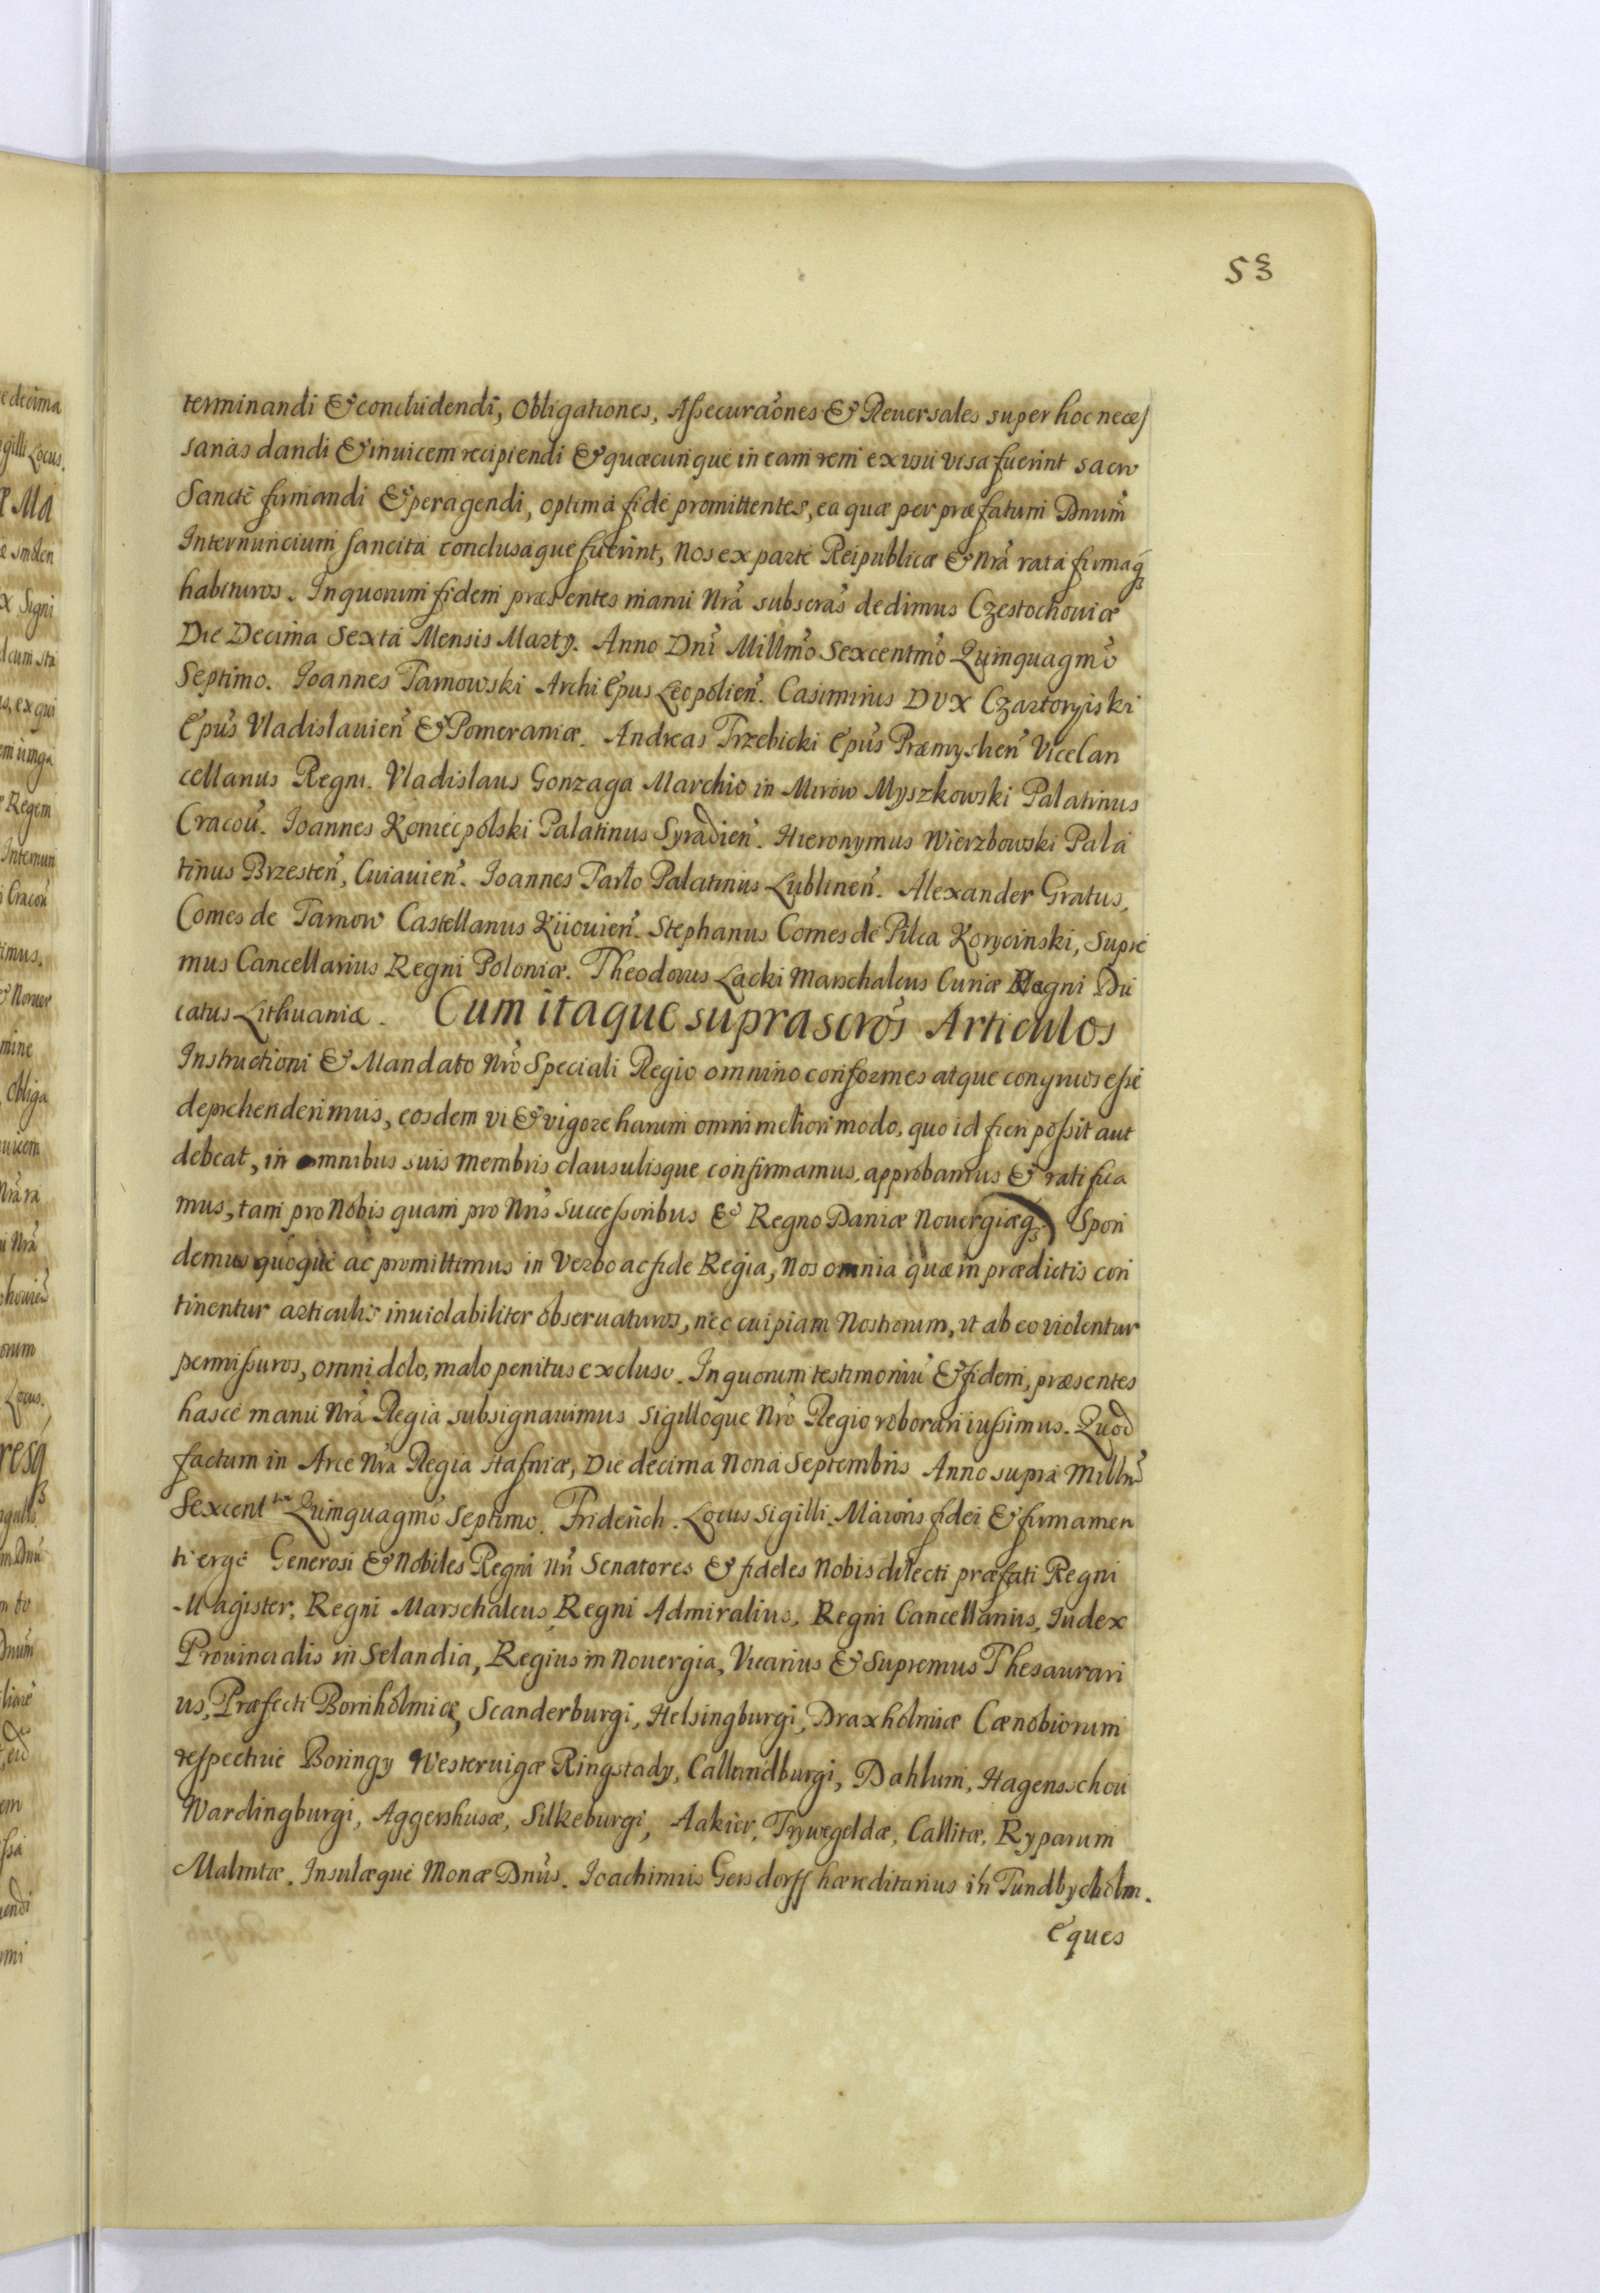 53
terminandi & concludendi, Obligationes, Assecurãones & Reuersales super hoc neces
sarias dandi & inuicem recipiendi & quæcunque in eam rem ex usu visa fuerint sacro
Sancte firmandi & peragendi, optima fide promittentes, ea quæ per præfatum Dnum̃
Internuncium sancita conclusaque fuerint, Nos ex parte Reipublicæ & Nrã rata firmaq3
habituros. In quorum fidem præsentes manu Nrã subscrãs dedimus Czestochouiæ
Die Decima Sexta Mensis Martÿ. Anno Dnĩ Millmõ Sexcentmõ Quinquagmõ
Septimo. Ioannes Tarnowski Archi Epus Leopolien̄. Casimirus DVX Czartoryiski
Epus̃ Vladislauien̄ & Pomeraniæ. Andreas Trzebicki Epus̃ Præmyslien̄ Vicecan
cellarius Regni. Vladislaus Gonzaga Marchio in Mirow Myszkowski Palatinus
Cracou̇. Ioannes Koniecpolski Palatinus Syradien̄. Hieronymus Wierzbowski Pala
tinus Brzesten̄, Cuiauien̄. Ioannes Tarlo Palatinus Lublinen̄. Alexander Gratus,
Comes de Tarnow Castellanus Kiiouien̄. Stephanus Comes de Pilca Korycinski, Supre
mus Cancellarius Regni Poloniæ. Theodorus Lacki Marschalcus Curiæ Magni Du
catus Lithuaniæ. Cum itaque suprascrõs Articulos
Instructioni & Mandato Nrõ Speciali Regio omnino conformes atque congruos esse
deprehenderimus, eosdem vi & vigore harum omni meliori modo, quo id fieri possit aut
debeat, in omnibus suis membris clausulisque confirmamus, approbamus & ratifica
mus, tam pro Nobis quam pro Nrĩs Successoribus & Regno Daniæ Nouergiæq3. Spon
demus quoque ac promittimus in Verbo ac fide Regia, Nos omnia quæ in prædictis con
tinentur articulis inuiolabiliter obseruaturos, nec cuipiam Nostrorum, ut ab eo violentur
permissuros, omni dolo, malo penitus excluso. In quorum testimoniũ & fidem, præsentes
hasce manu Nrã Regia subsignauimus Sigilloque Nrõ Regio roborari iussimus. Quod
factum in Arce Nrã Regia Hafniæ, Die decima Nona Septembris Anno supra Millmõ
Sexcent.mo Quinquagmõ Septimo. Friderich. Locus Sigilli. Maioris fidei & firmamen
ti ergo Generosi & Nobiles Regni Nrĩ Senatores & fideles Nobis dilecti præfati Regni
Magister, Regni Marschalcus, Regni Admiralius, Regni Cancellarius, Iudex
Prouincialis in Selandia, Regius in Nouergia, Vicarius & Supremus Thesaurari
us, Præfecti Bornholmiæ, Scanderburgi, Helsingburgi, Draxholmiæ Cænobiorum
respectiue Boringy Westeruigæ Ringstady, Callundburgi, Dahlum, Hagensschou
Wardingburgi, Aggershusæ, Silkeburgi, Aakier, Tryweggeldæ, Callitæ, Ryparum
Malmtæ. Insulæque Monæ Dnus̃. Ioachimus Gersdorff hæreditarius in Tundbyeholm.
Eques